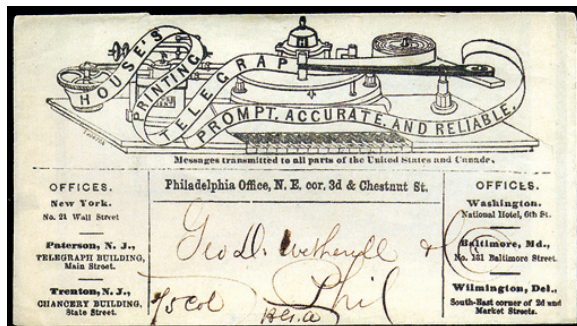 HOUSE'S PRINTING TELEGRAPH
PROMPT. ACCURATE. AND RELIABLE.
Messages transmitted to all parts of the United States and Canada.
Philadelphia Office, N. E. cor. 3d & Chestnut St.
OFFICES.
New York.
No. 21 Wall Street
Paterson, N. J.,
TELEGRAPH BUILDING,
Main Street.
Trenton, N. J.,
CHANCERY BUILDING,
State Street.
Geo D. Wetherill & Co
Phil
75 Col
OFFICES.
Washington.
National Hotel, 6th St.
Baltimore, Md.,
No. 181 Baltimore Street.
Wilmington, Del.,
South-East corner of 2d and
Market Streets.